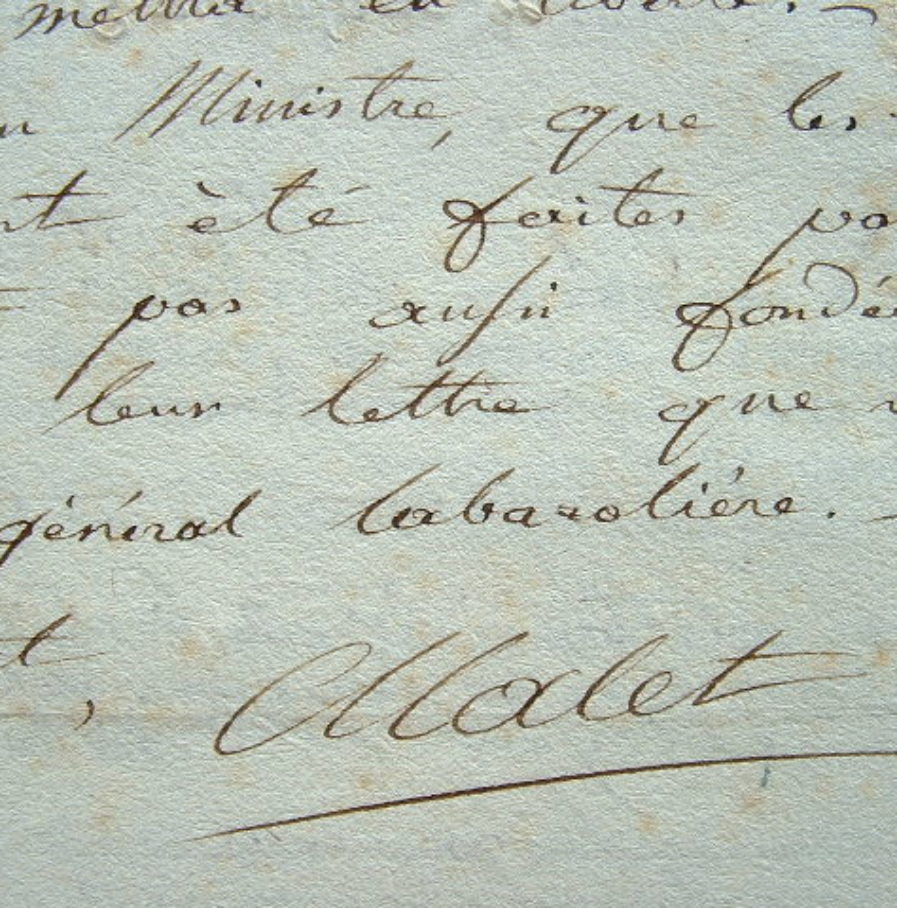 mettra en
Ministre, que les
nt été faites pa
pas aussi fondé
leur lettre que
général labarolière.
t,
Malet